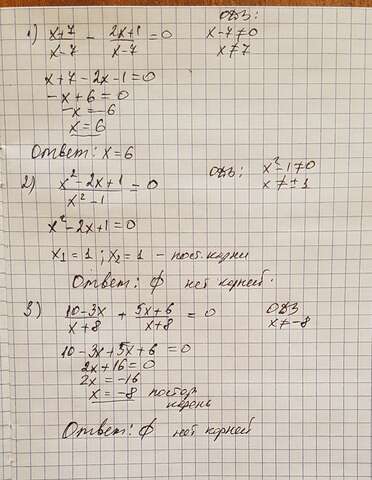 ОДЗ:
1) x+7/x-7 - 2x+1/x-7 = 0
x-7≠0
x≠7
x+7-2x-1=0
-x+6=0
-x=-6
x=6
Ответ: x=6
2) x²-2x+1/x²-1 = 0
ОДЗ: x²-1≠0
x≠±1
x²-2x+1=0
x₁=1; x₂=1 - пост. корни
Ответ: ϕ нет корней.
3) 10-3x/x+8 + 5x+6/x+8 = 0
ОДЗ
x≠-8
10-3x+5x+6=0
2x+16=0
2x=-16
x=-8 постор.
корень
Ответ: ϕ нет корней